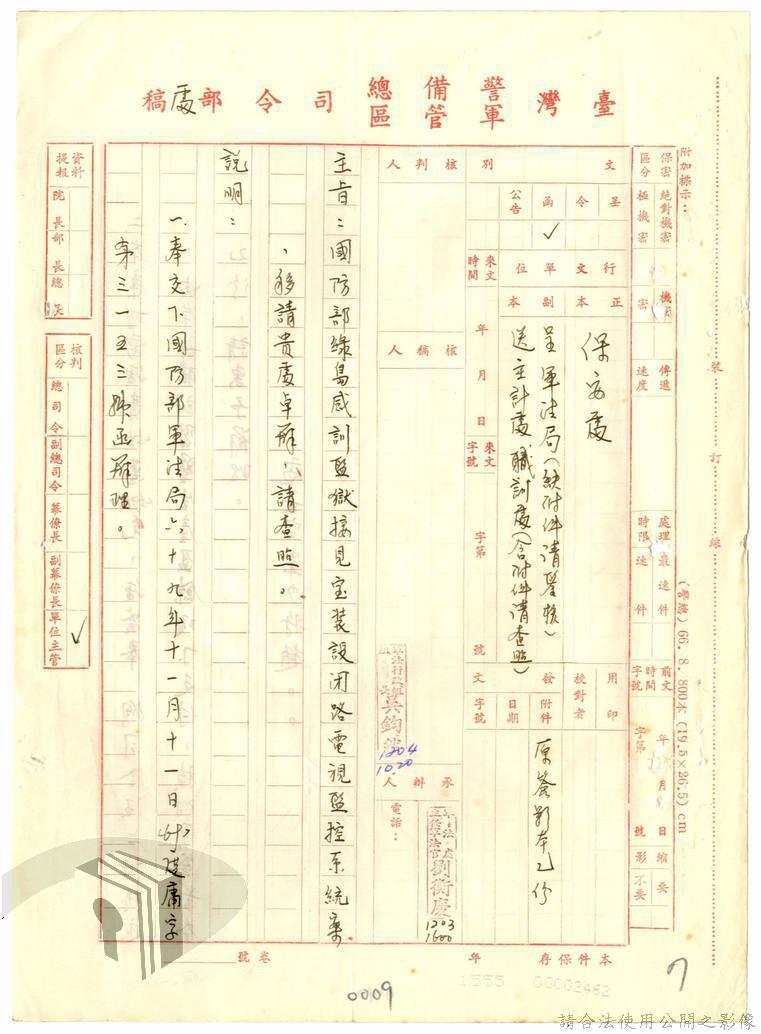 臺灣警備總司令部處稿
軍管區
附加標示：
保密區分
絕對機密
極機密
機密
密
傳遞速度
處理時限
最速件
速件
前文時間字號
年 月 日
字第 號
縮影
要
不要
(警總) 66. 8. 800本 (19.5×26.5) cm
裝 訂 線
文別
呈
令
函 ✓
公告
行文單位
正本
保安處
副本
呈軍法局(缺附件請鑒核)
送主計處、職訓處(含附件請查照)
來文時間
年 月 日
來文字號
字第 號
用印
校對者
發文
附件
原簽影本乙份
日期
字號
核判人
核稿人
軍法行政組
吳鈞
1204
10.20
承辦人
電話：
劉衡慶
1203
1600
主旨：國防部綠島感訓監獄接見室裝設閉路電視監控系統案
，移請貴處卓辦，請查照。
說明：
一、奉交下國防部軍法局六十九年十一月十一日
字
第三一五三號函辦理。
資料提報
院長
部長
總長
核判區分
總司令
副總司令
幕僚長
副幕僚長
單位主管 ✓
本件保存 年
卷號
1555 00002462
0009
7
請合法使用公開之影像